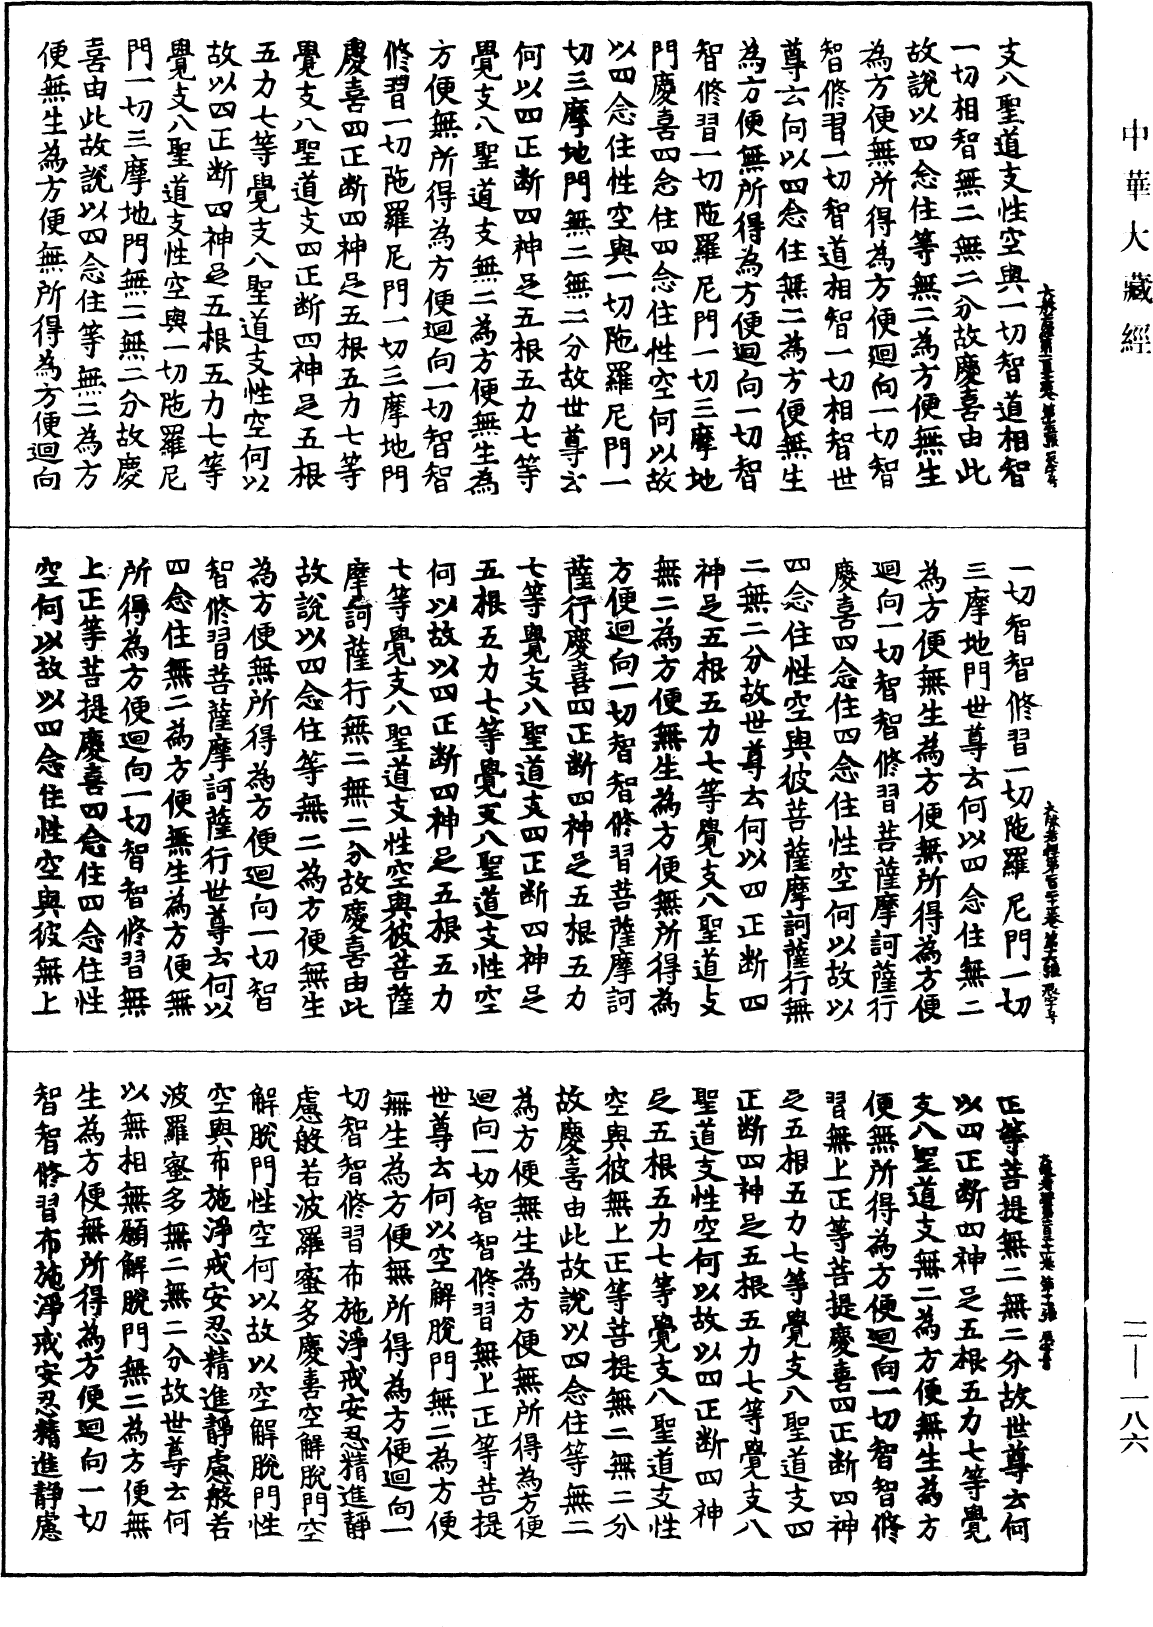 中華大藏經
支八聖道支性空與一切智道相智
一切相智無二無二分故慶喜由此
故說以四念住等無二為方便無生
為方便無所得為方便迴向一切智
智修習一切智道相智一切相智世
尊云何以四念住無二為方便無生
為方便無所得為方便迴向一切智
智修習一切陁羅尼門一切三摩地
門慶喜四念住四念住性空何以故
以四念住性空與一切陁羅尼門一
切三摩地門無二無二分故世尊云
何以四正斷四神足五根五力七等
覺支八聖道支無二為方便無生為
方便無所得為方便迴向一切智智
修習一切陁羅尼門一切三摩地門
慶喜四正斷四神足五根五力七等
覺支八聖道支四正斷四神足五根
五力七等覺支八聖道支性空何以
故以四正斷四神足五根五力七等
覺支八聖道支性空與一切陁羅尼
門一切三摩地門無二無二分故慶
喜由此故說以四念住等無二為方
便無生為方便無所得為方便迴向
一切智智修習一切陁羅尼門一切
三摩地門世尊云何以四念住無二
為方便無生為方便無所得為方便
迴向一切智智修習菩薩摩訶薩行
慶喜四念住四念住性空何以故以
四念住性空與彼菩薩摩訶薩行無
二無二分故世尊云何以四正斷四
神足五根五力七等覺支八聖道支
無二為方便無生為方便無所得為
方便迴向一切智智修習菩薩摩訶
薩行慶喜四正斷四神足五根五力
七等覺支八聖道支四正斷四神足
五根五力七等覺支八聖道支性空
何以故以四正斷四神足五根五力
七等覺支八聖道支性空與彼菩薩
摩訶薩行無二無二分故慶喜由此
故說以四念住等無二為方便無生
為方便無所得為方便迴向一切智
智修習菩薩摩訶薩行世尊云何以
四念住無二為方便無生為方便無
所得為方便迴向一切智智修習無
上正等菩提慶喜四念住四念住性
空何以故以四念住性空與彼無上
正等菩提無二無二分故世尊云何
以四正斷四神足五根五力七等覺
支八聖道支無二為方便無生為方
便無所得為方便迴向一切智智修
習無上正等菩提慶喜四正斷四神
足五根五力七等覺支八聖道支四
正斷四神足五根五力七等覺支八
聖道支性空何以故以四正斷四神
足五根五力七等覺支八聖道支性
空與彼無上正等菩提無二無二分
故慶喜由此故說以四念住等無二
為方便無生為方便無所得為方便
迴向一切智智修習無上正等菩提
世尊云何以空解脫門無二為方便
無生為方便無所得為方便迴向一
切智智修習布施淨戒安忍精進靜
慮般若波羅蜜多慶喜空解脫門空
解脫門性空何以故以空解脫門性
空與布施淨戒安忍精進靜慮般若
波羅蜜多無二無二分故世尊云何
以無相無願解脫門無二為方便無
生為方便無所得為方便迴向一切
智智修習布施淨戒安忍精進靜慮
二—一八六